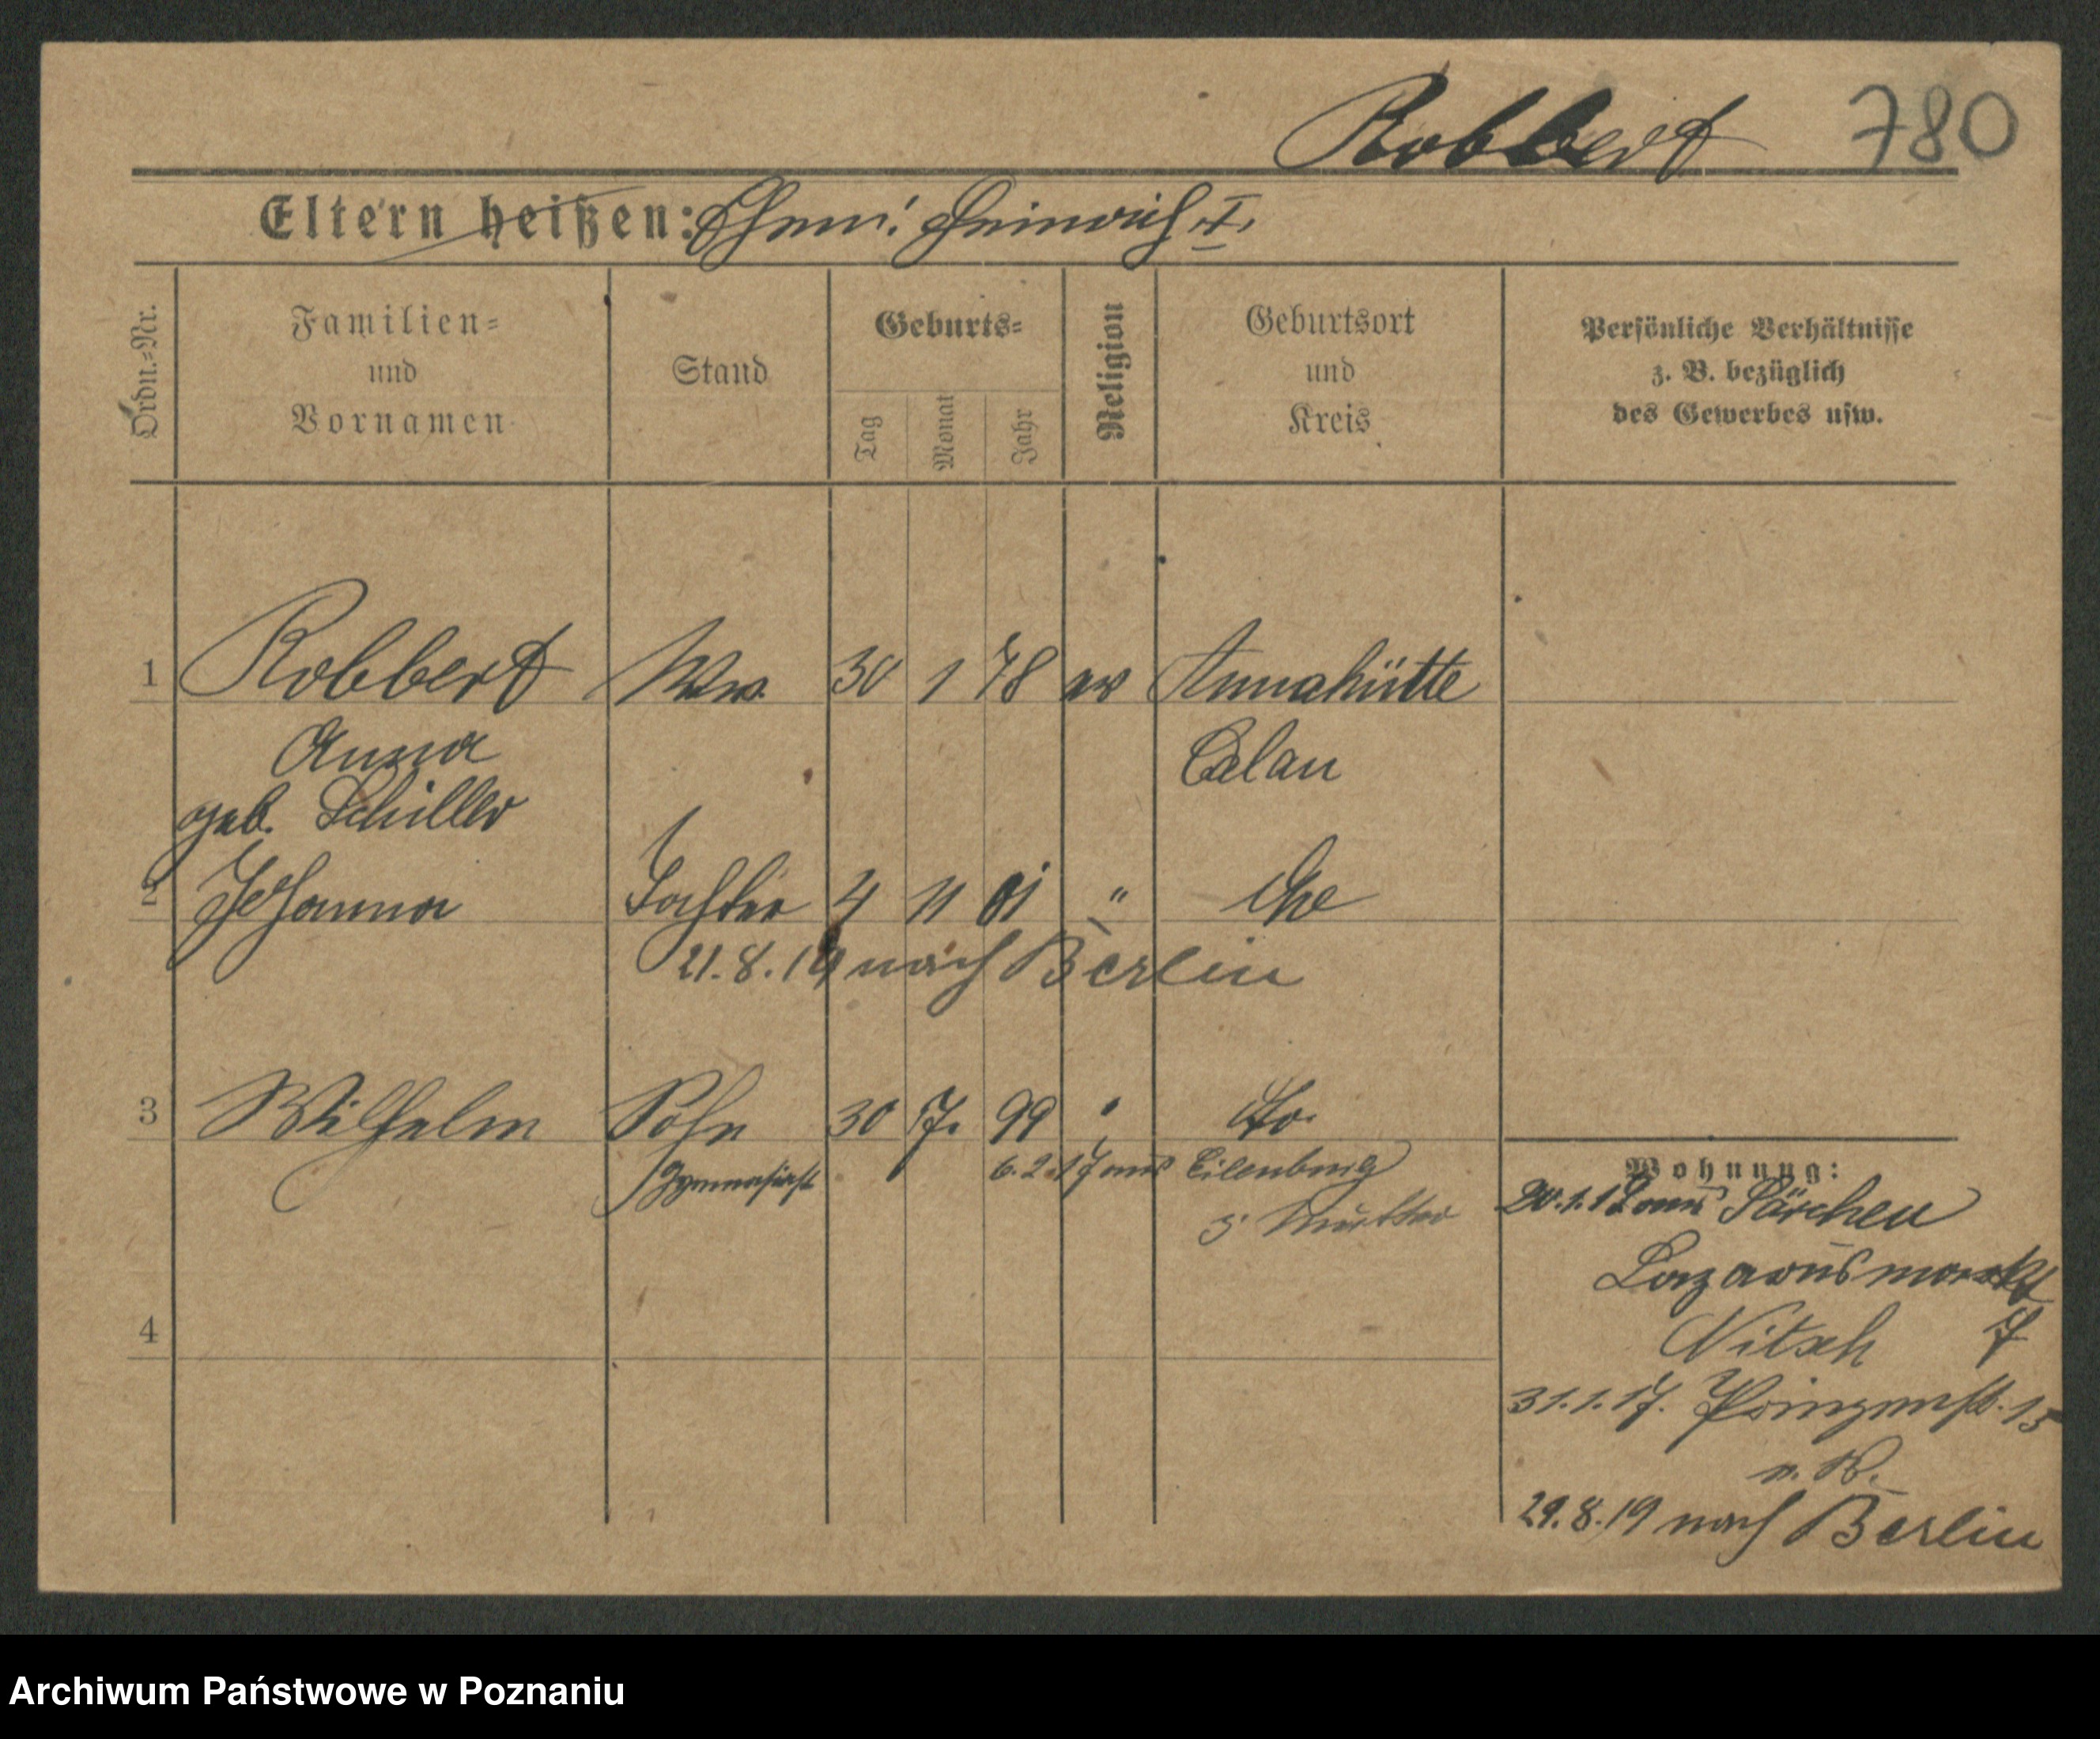 Robbert 780
Eltern heißen: Ehem: Heinrich I.
Ordn.=Nr.
Familien=
und
Vornamen
Stand
Geburts=
Tag
Monat
Jahr
Religion
Geburtsort
und
Kreis
Persönliche Verhältnisse
z. B. bezüglich
des Gewerbes usw.
1 Robbert Ww. 30 1 78 ev Annahütte
Anna Calau
geb. Schiller
2 Johanna Tochter 4 11 01 "
21.8.19 nach Berlin
3 Wilhelm Sohn 30 7. 99 " dto.
Gymnasiast 6.2.17 aus Eilenburg
z. Mutter
4
Wohnung:
aus Särchen
Lazarusmarkt
Nitsch 7
31.1.17. Prinzenst. 15
29.8.19 nach Berlin
Archiwum Państwowe w Poznaniu